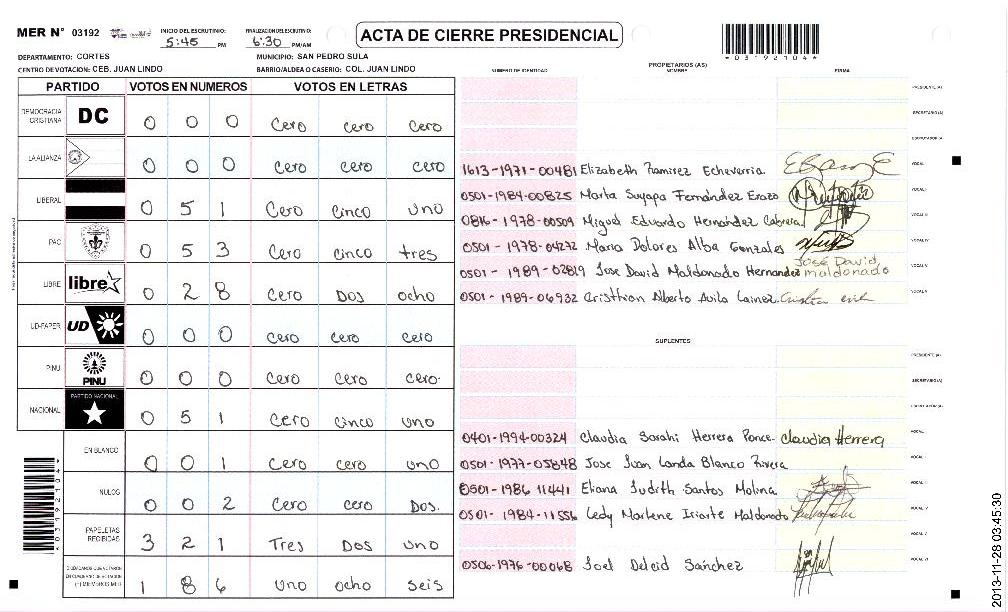 MER N° 03192 INICIO DEL ESCRUTINIO: 5:45 PM FINALIZACION DEL ESCRUTINIO: 6:30 PM/AM ACTA DE CIERRE PRESIDENCIAL *03192104*
DEPARTAMENTO: CORTES MUNICIPIO: SAN PEDRO SULA
CENTRO DE VOTACION: CEB. JUAN LINDO BARRIO/ALDEA O CASERIO: COL. JUAN LINDO
PARTIDO VOTOS EN NUMEROS VOTOS EN LETRAS
DEMOCRACIA CRISTIANA DC 0 0 0 Cero cero cero
LA ALIANZA 0 0 0 Cero cero cero
LIBERAL 0 5 1 Cero cinco uno
PAC 0 5 3 Cero cinco tres
LIBRE libre 0 2 8 Cero Dos ocho
UD-FAPER UD 0 0 0 Cero cero cero
PINU PINU 0 0 0 Cero cero cero.
NACIONAL PARTIDO NACIONAL 0 5 1 Cero cinco uno
EN BLANCO 0 0 1 Cero cero uno
NULOS 0 0 2 Cero cero Dos.
PAPELETAS RECIBIDAS 3 2 1 Tres Dos uno
CIUDADANOS QUE VOTARON EN CUADERNO DE VOTACION (+) MIEMBROS MER 1 8 6 Uno ocho seis
*03192104*
PROPIETARIOS (AS)
NUMERO DE IDENTIDAD NOMBRE FIRMA
PRESIDENTE (A)
SECRETARIO (A)
ESCRUTADOR (A)
1613-1971-00481 Elizabeth Ramirez Echeverria VOCAL I
0501-1984-00825 Marta Suyapa Fernández Erazo VOCAL II
0816-1978-00509 Miguel Eduardo Hernández Cabrera VOCAL III
0501-1978-04272 Maria Dolores Alba Gonzales VOCAL IV
0501-1989-02819 Jose David Maldonado Hernandez José David maldonado VOCAL V
0501-1989-06932 Cristhian Alberto Avila Lainez VOCAL VI
SUPLENTES
PRESIDENTE (A)
SECRETARIO (A)
ESCRUTADOR (A)
0401-1994-00324 Claudia Sarahi Herrera Ponce Claudia Herrera VOCAL I
0501-1977-05848 Jose Juan Landa Blanco Rivera
0501-1986 11441 Eliana Judith Santos Molina
0501-1984-11556 Ledy Marlene Iriarte Maldonado
VOCAL V
0506-1976-00068 Joel Delcid Sánchez VOCAL VI
2013-11-28 03:45:30